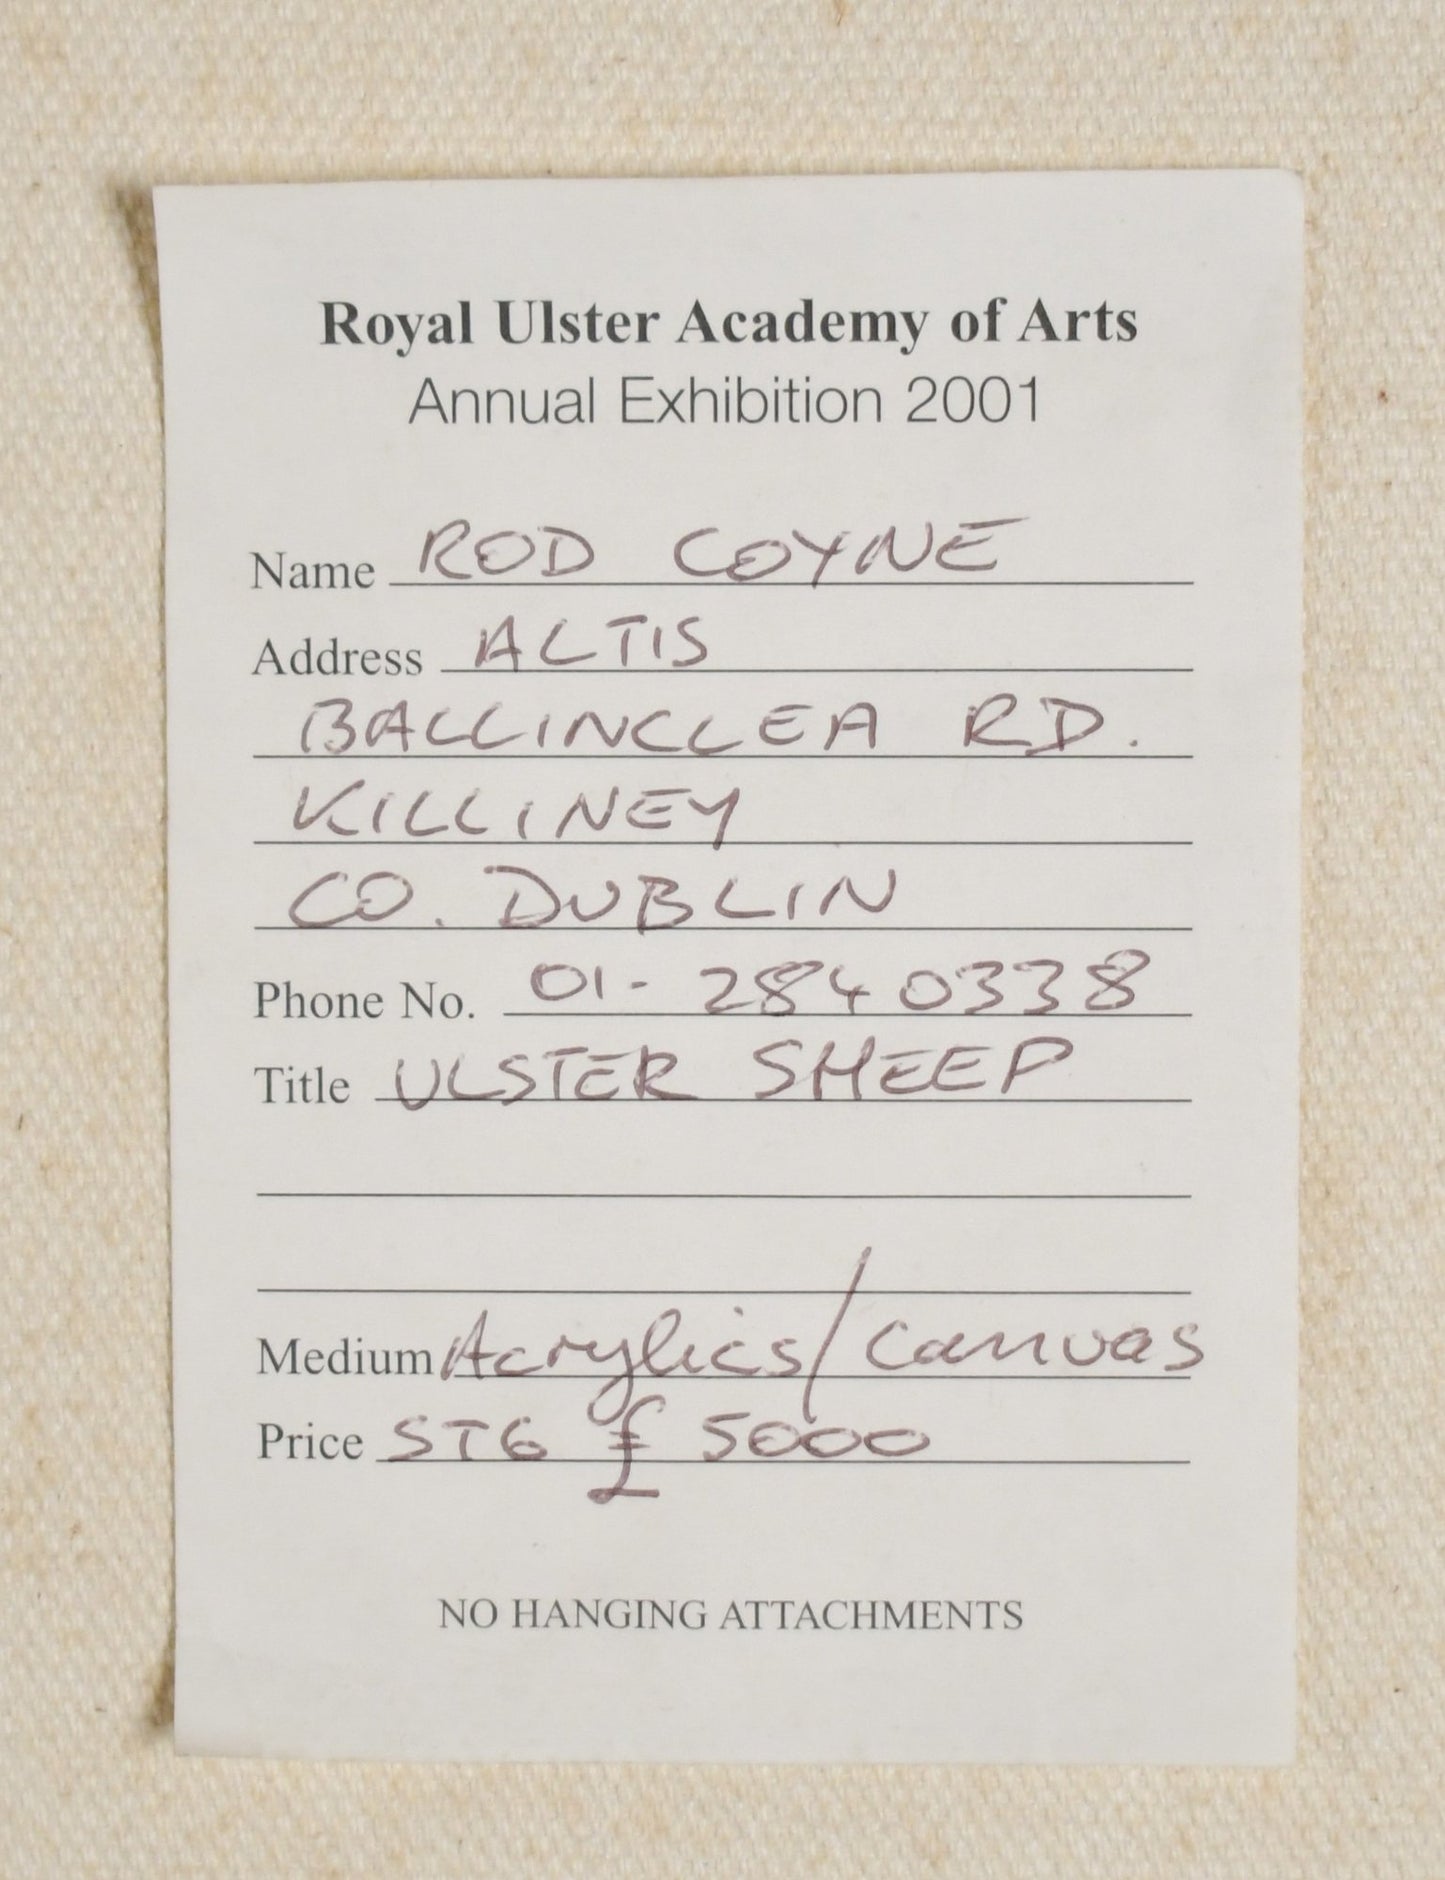 Royal Ulster Academy of Arts
Annual Exhibition 2001
Name ROD COYNE
Address ALTIS
BALLINCLEA RD.
KILLINEY
CO. DUBLIN
Phone No. 01- 2840338
Title ULSTER SHEEP
Medium Acrylics/canvas
Price STG £ 5000
NO HANGING ATTACHMENTS